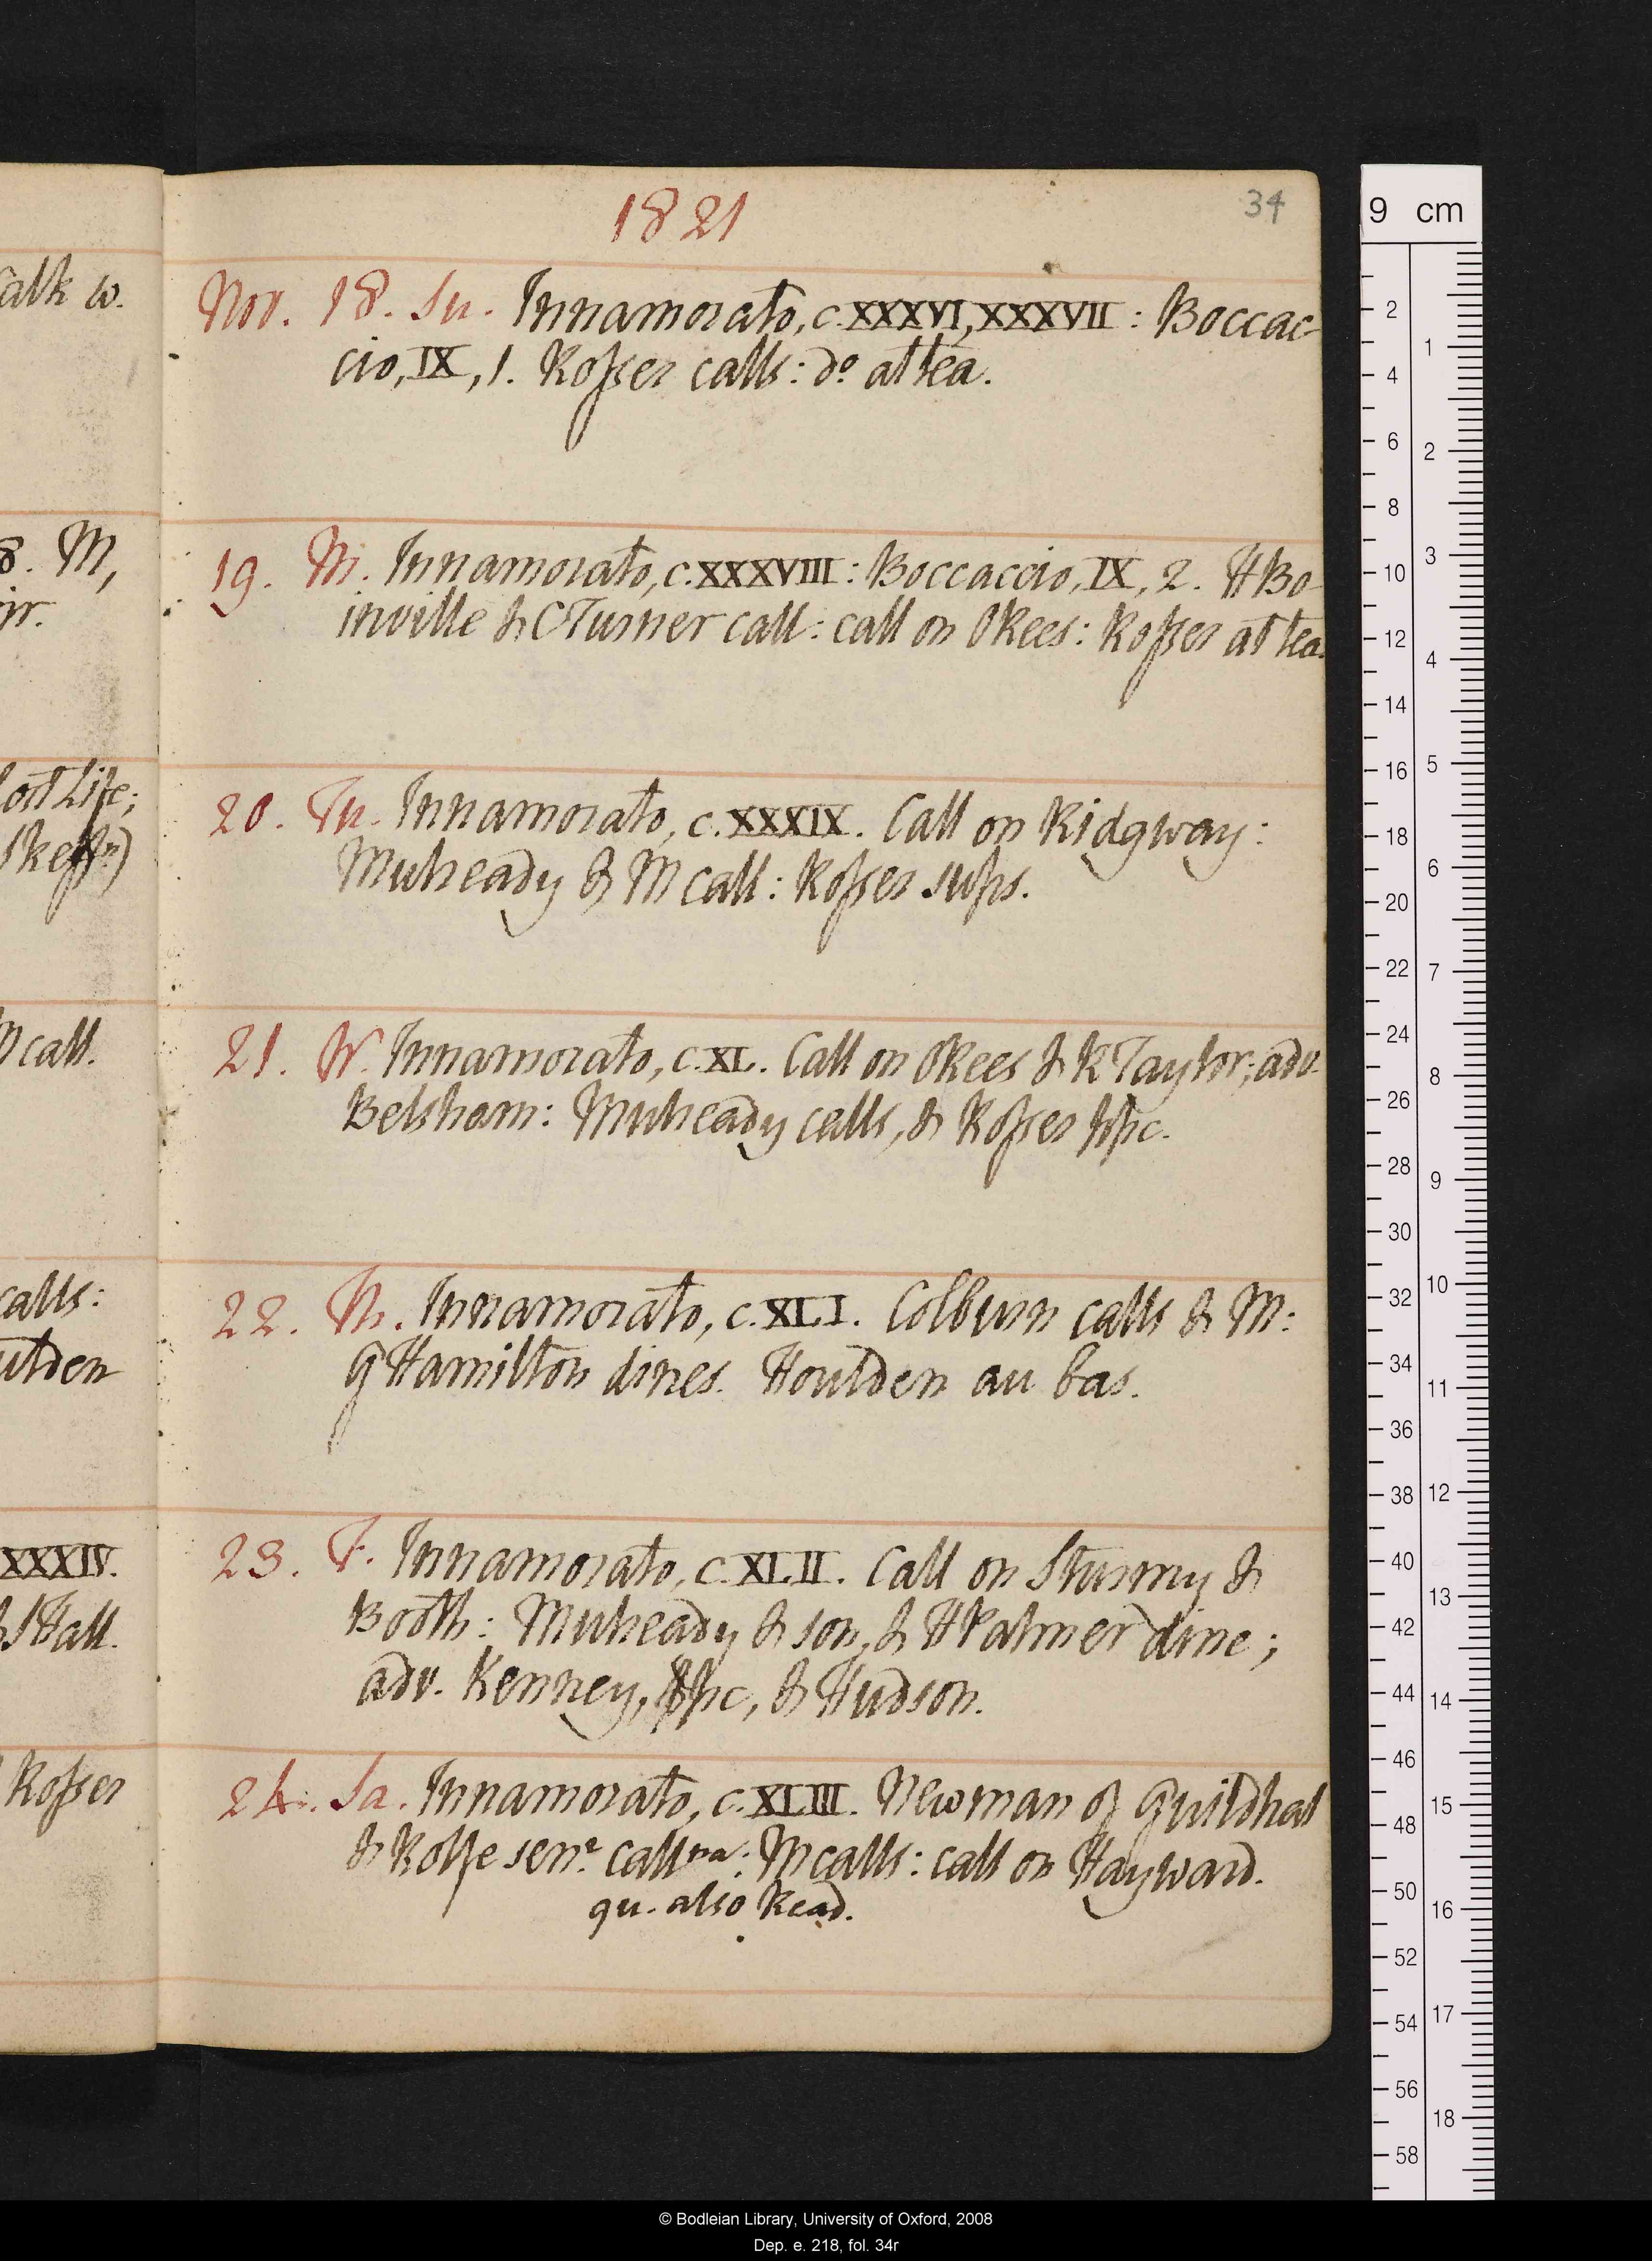 1821
34
Nov. 18. Su. Innamorato, c. XXXVI, XXXVII: Boccac-
cio, IX, 1. Rosser calls: do at tea.
19. M. Innamorato, c. XXXVIII: Boccaccio, IX, 2. H Bo-
inville & C Turner call: call on O Rees: Rosser at tea.
20. Tu. Innamorato, c. XXXIX. Call on Ridgway:
Mulready & M call: Rosser sups.
21. W. Innamorato, c. XL. Call on O Rees & R Taylor; adv.
Belsham: Mulready calls, & Rosser
22. Th. Innamorato, c. XLI. Colburn calls & M:
G Hamilton dines. Houlden au bas.
23. F. Innamorato, c. XLII. Call on Sturmy &
Booth: Mulready & son, & H Palmer dine;
adv. Kenney, & Hudson.
24. Sa. Innamorato, c. XLIII. Newman of Guildhal
& Rolfe senr call na: M calls: call on Hayward.
qu. also Read.
alk w.
8. M,
ost Life;
M call.
calls:
ulden
XXXIV.
& S Hall.
Rosser
9 cm
© Bodleian Library, University of Oxford, 2008
Dep. e. 218, fol. 34r